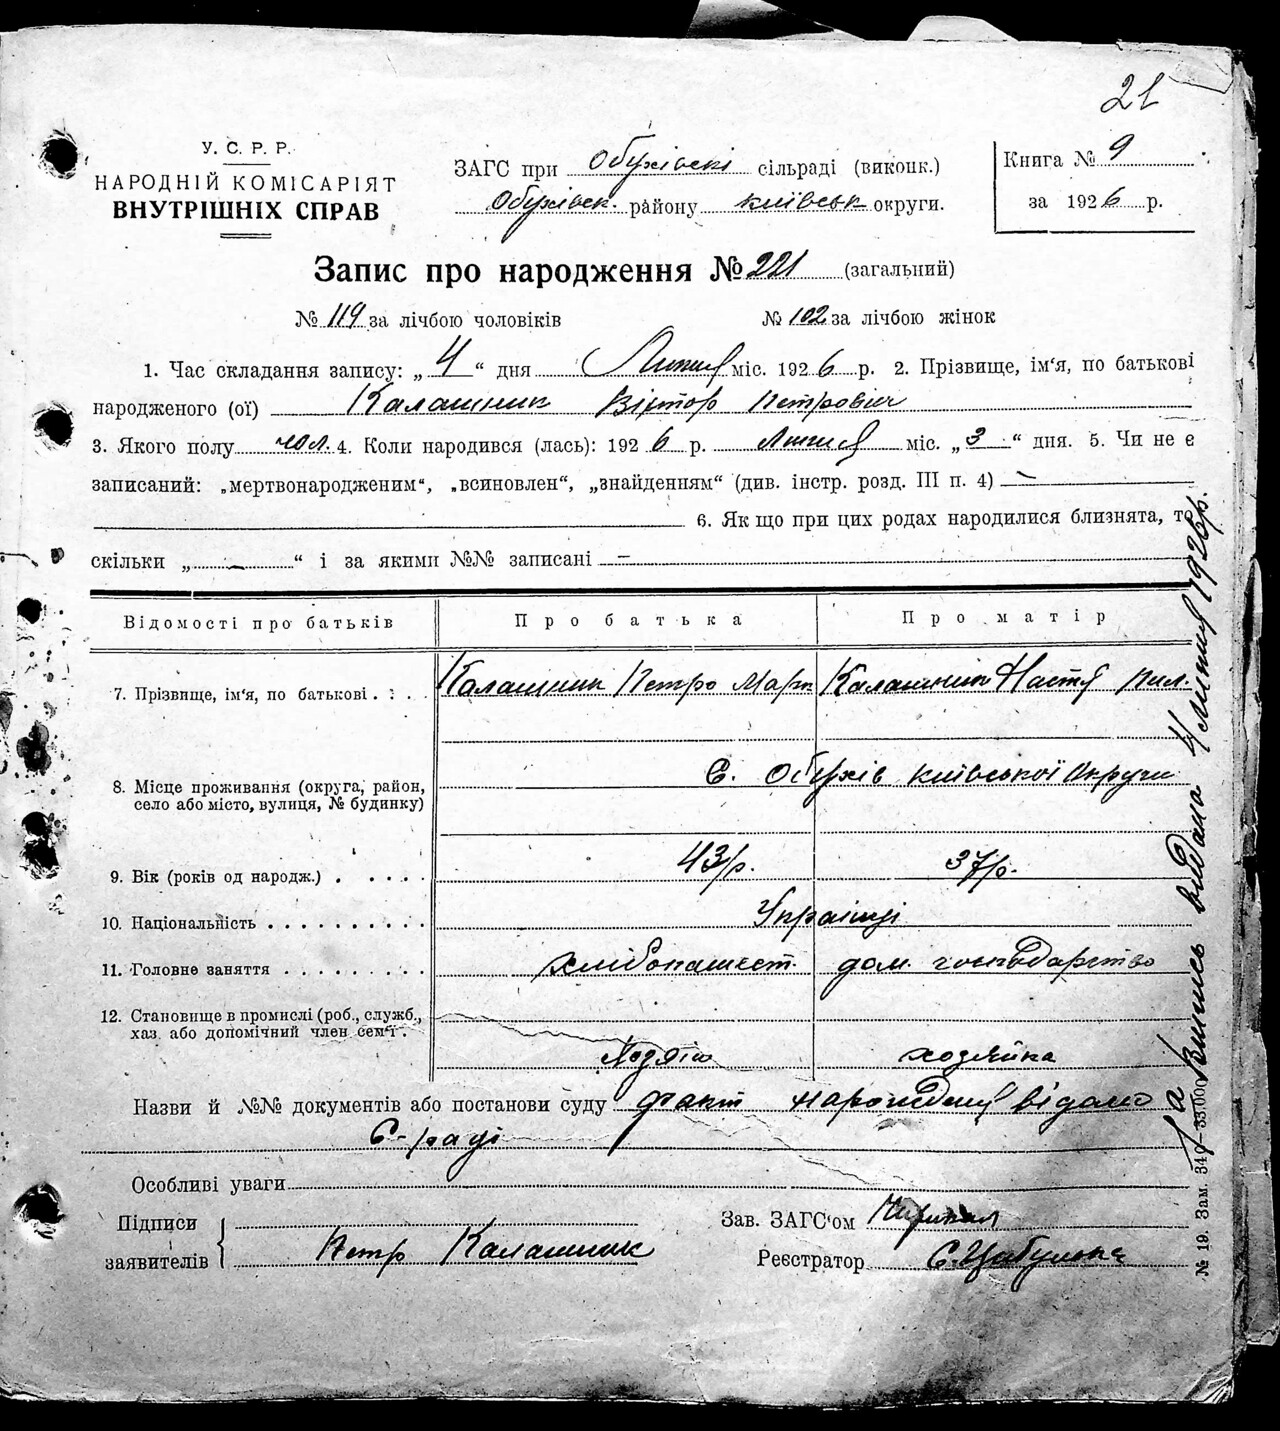 21
У. С. Р. Р.
НАРОДНІЙ КОМІСАРІЯТ
ВНУТРІШНІХ СПРАВ
ЗАГС при Обухівскі сільраді (виконк.)
Обухівськ. району київськ округи.
Книга № 9
за 1926 р.
Запис про народження № 221 (загальний)
№ 119 за лічбою чоловіків
№ 102 за лічбою жінок
1. Час складання запису: „ 4 “ дня Липня міс. 1926 р. 2. Прізвище, ім'я, по батькові
народженого (ої) Калашник Віктор Петрович
3. Якого полу чол. 4. Коли народився (лась): 1926 р. Липня міс. „ 3 “ дня. 5. Чи не є
записаний: „мертвонародженим“, „всиновлен“, „знайденням“ (див. інстр. розд. III п. 4) —
6. Як що при цих родах народилися близнята, то
скільки „ — “ і за якими №№ записані —
Відомості про батьків
Про батька
Про матір
7. Прізвище, ім'я, по батькові . . .
Калашник Петро Марк
Калашник Настя
8. Місце проживання (округа, район,
село або місто, вулиця, № будинку)
С. Обухів київської округи
9. Вік (років од народж.) . . . . .
43 р.
37 р.
10. Національність . . . . . . . . . .
Українці
11. Головне заняття . . . . . . . . .
хлібопашест.
дом. господарство
12. Становище в промислі (роб., служб.,
хаз. або допомічний член сем'ї .
Хозяін
хозяйка
Назви й №№ документів або постанови суду факт народження відомо
С-раді
Особливі уваги
Підписи
заявителів
Петр Калашник
Зав. ЗАГС'ом
Реєстратор С. Цибулько
Випись видана 4 липня 1926 р.
№ 19. Зам. 340—33000